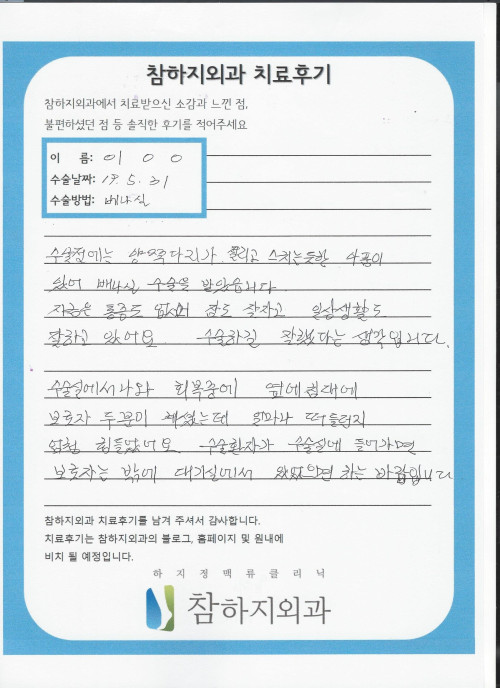 참하지외과 치료후기
참하지외과에서 치료받으신 소감과 느낀 점,
불편하셨던 점 등 솔직한 후기를 적어주세요
이 름: 이 0 0
수술날짜: 19. 5. 31
수술방법: 베나실
수술전에는 양쪽다리가 스치는듯한 아픔이
있어 베나실 수술을 받았습니다.
지금은 통증도 없어서 잠도 잘자고 일상생활도
잘하고 있어요. 수술하길 잘했다는 생각입니다.
수술실에서 나와 회복중에 옆에침대에
보호자 두분이 계셨는데 얼마나 떠들던지
엄청 힘들었어요. 수술환자가 수술실에 들어가면
보호자는 밖에 대기실에서 있었으면 하는 바람입니다
참하지외과 치료후기를 남겨 주셔서 감사합니다.
치료후기는 참하지외과의 블로그, 홈페이지 및 원내에
비치 될 예정입니다.
하지정맥류클리닉
참하지외과